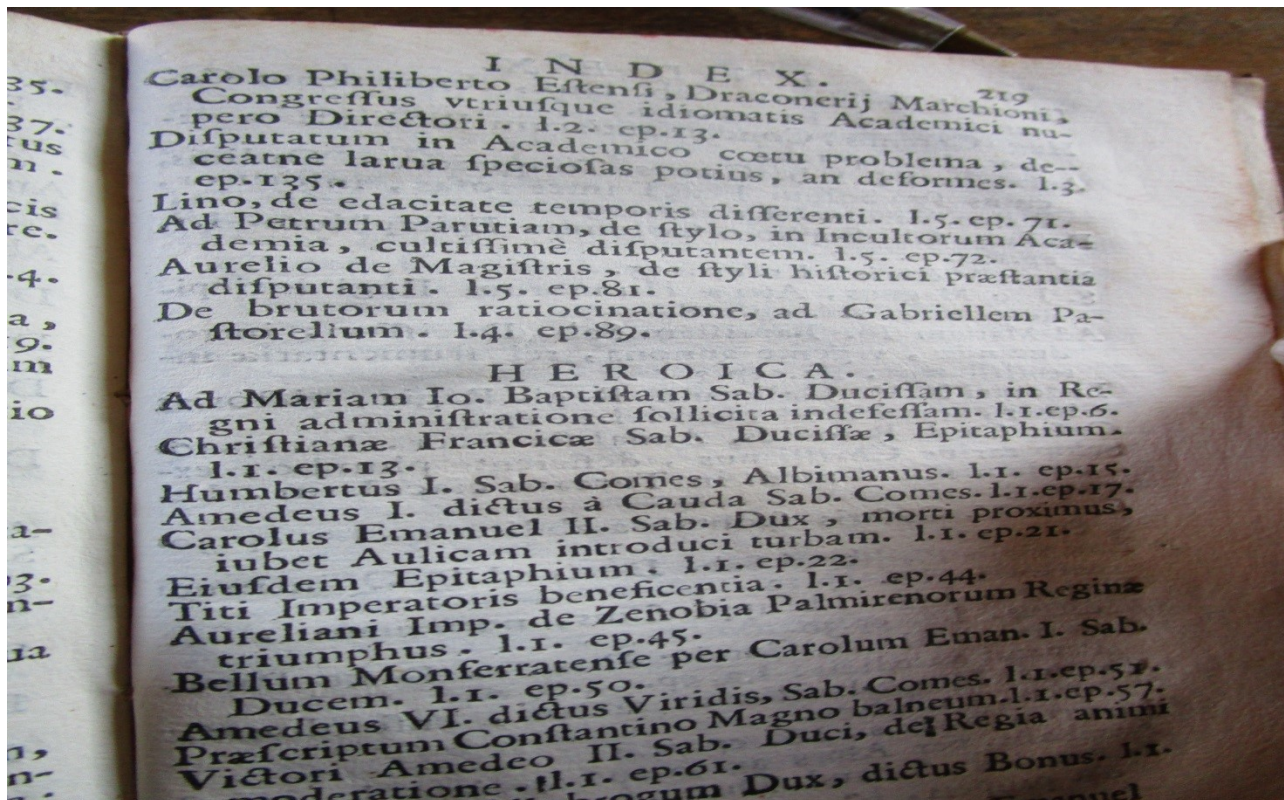 INDEX. 219
Carolo Philiberto Eſtenſi, Draconerij Marchioni,
Congreſſus vtriuſque idiomatis Academici nu-
pero Directori. l.2. ep.13.
Diſputatum in Academico cœtu problema, de--
ceatne larua ſpecioſas potius, an deformes. l.3.
ep.135.
Lino, de edacitate temporis diſſerenti. l.5. ep. 71.
Ad Petrum Parutiam, de ſtylo, in Incultorum Aca-
demia, cultiſſimè diſputantem. l.5. ep.72.
Aurelio de Magiſtris, de ſtyli hiſtorici præſtantia
diſputanti. l.5. ep.81.
De brutorum ratiocinatione, ad Gabriellem Pa-
ſtorellum. l.4. ep.89.
HEROICA.
Ad Mariam Io. Baptiſtam Sab. Duciſſam, in Re-
gni adminiſtratione ſollicita indefeſſam. l.1.ep.6.
Chriſtianæ Francicæ Sab. Duciſſæ, Epitaphium.
l.1. ep.13.
Humbertus I. Sab. Comes, Albimanus. l.1. ep.15.
Amedeus I. dictus à Cauda Sab. Comes. l.1.ep.17.
Carolus Emanuel II. Sab. Dux, morti proximus,
iubet Aulicam introduci turbam. l.1. ep.21.
Eiuſdem Epitaphium. l.1. ep.22.
Titi Imperatoris beneficentia. l.1. ep.44.
Aureliani Imp. de Zenobia Palmirenorum Reginæ
triumphus. l.1. ep.45.
Bellum Monferratenſe per Carolum Eman. I. Sab.
Ducem. l.1. ep.50.
Amedeus VI. dictus Viridis, Sab. Comes. l.1.ep.51.
Præſcriptum Conſtantino Magno balneum.l.1.ep.57.
Victori Amedeo II. Sab. Duci, de Regia animi
moderatione. l.1. ep.61.
Dux, dictus Bonus. l.1.